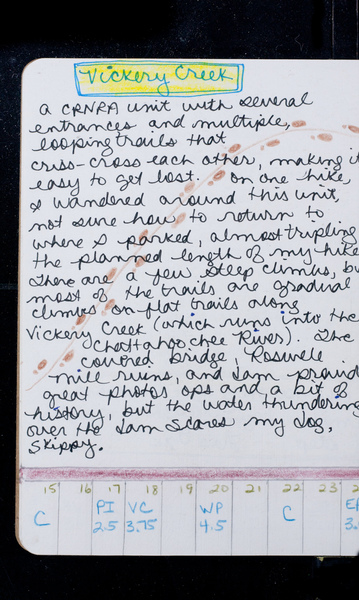 Vickery Creek
a CRNRA unit with several
entrances and multiple,
looping trails that
criss-cross each other, making i
easy to get lost. On one hike,
I wandered around this unit,
not sure how to return to
where I parked, almost tripling
the planned length of my hike
There are a few steep climbs, bu
most of the trails are gradual
climbs on flat trails along
Vickery Creek (which runs into the
Chattahoochee River). The
covered bridge, Roswell
mill ruins, and dam provid
great photos ops and a bit of
history, but the water thundering
over the dam scares my dog,
Skippy.
15 16 17 18 19 20 21 22 23 2
C PI VC WP C E
2.5 3.75 4.5 3.